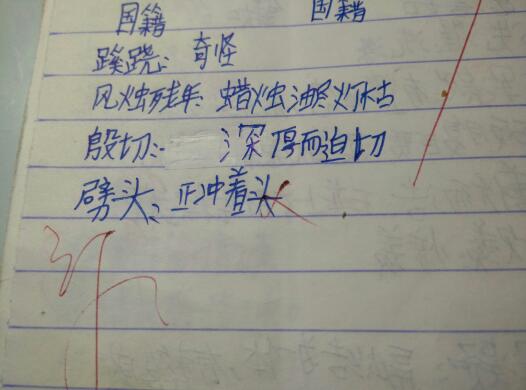 国籍 国籍
蹊跷: 奇怪
风烛残年: 蜡烛油尽灯枯
殷切: 深厚而迫切
劈头: 正冲着头